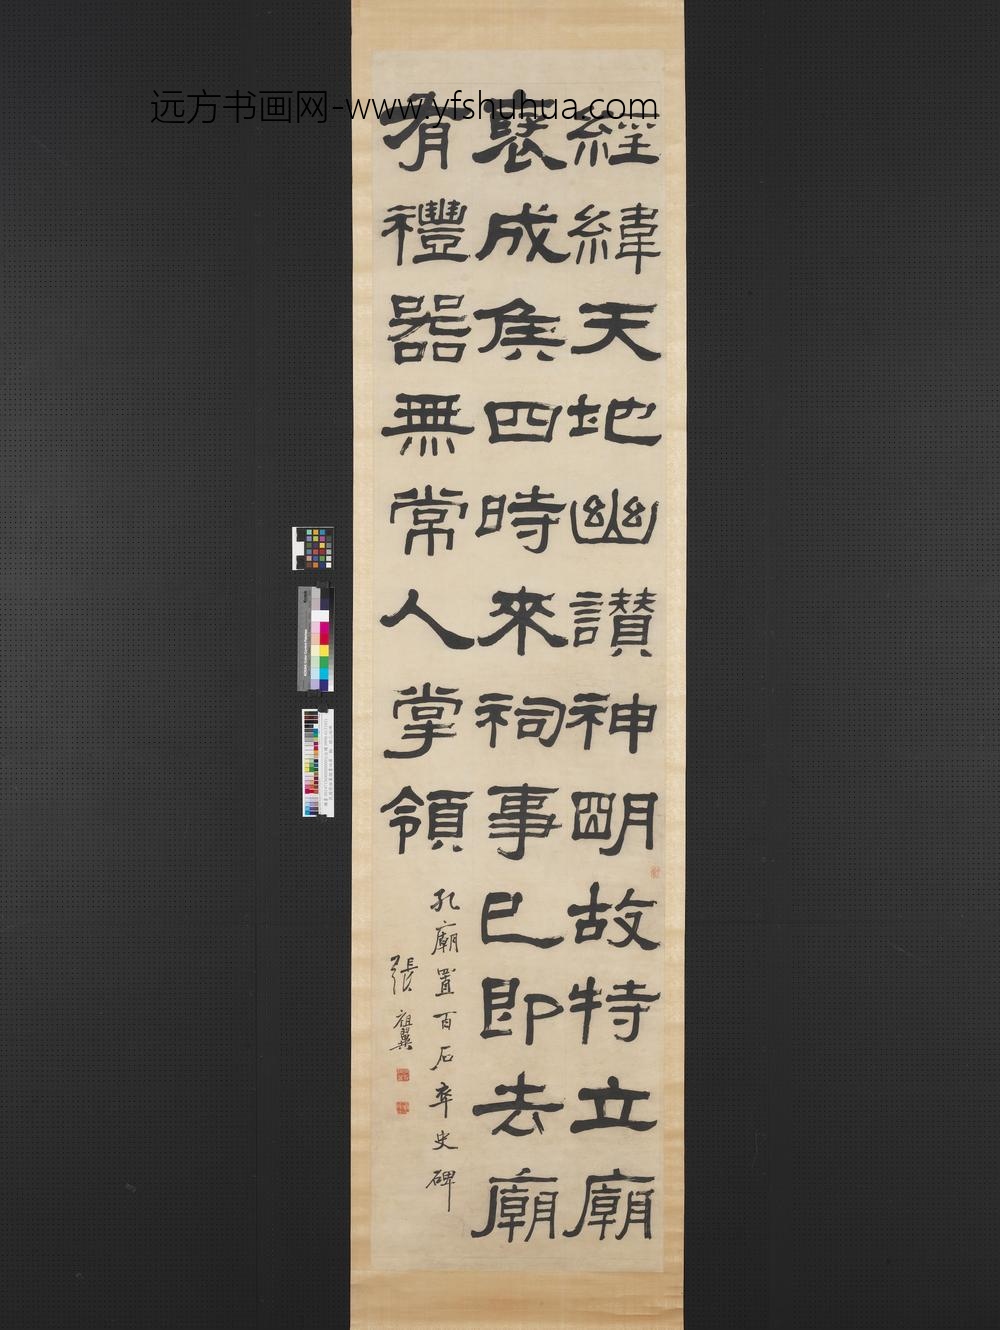 远方书画网-www.yfshuhua.com
經緯天地幽讚神明故特立廟
襃成侯四時來祠事已即去廟
有禮器無常人掌領
孔廟置百石卒史碑
張祖翼